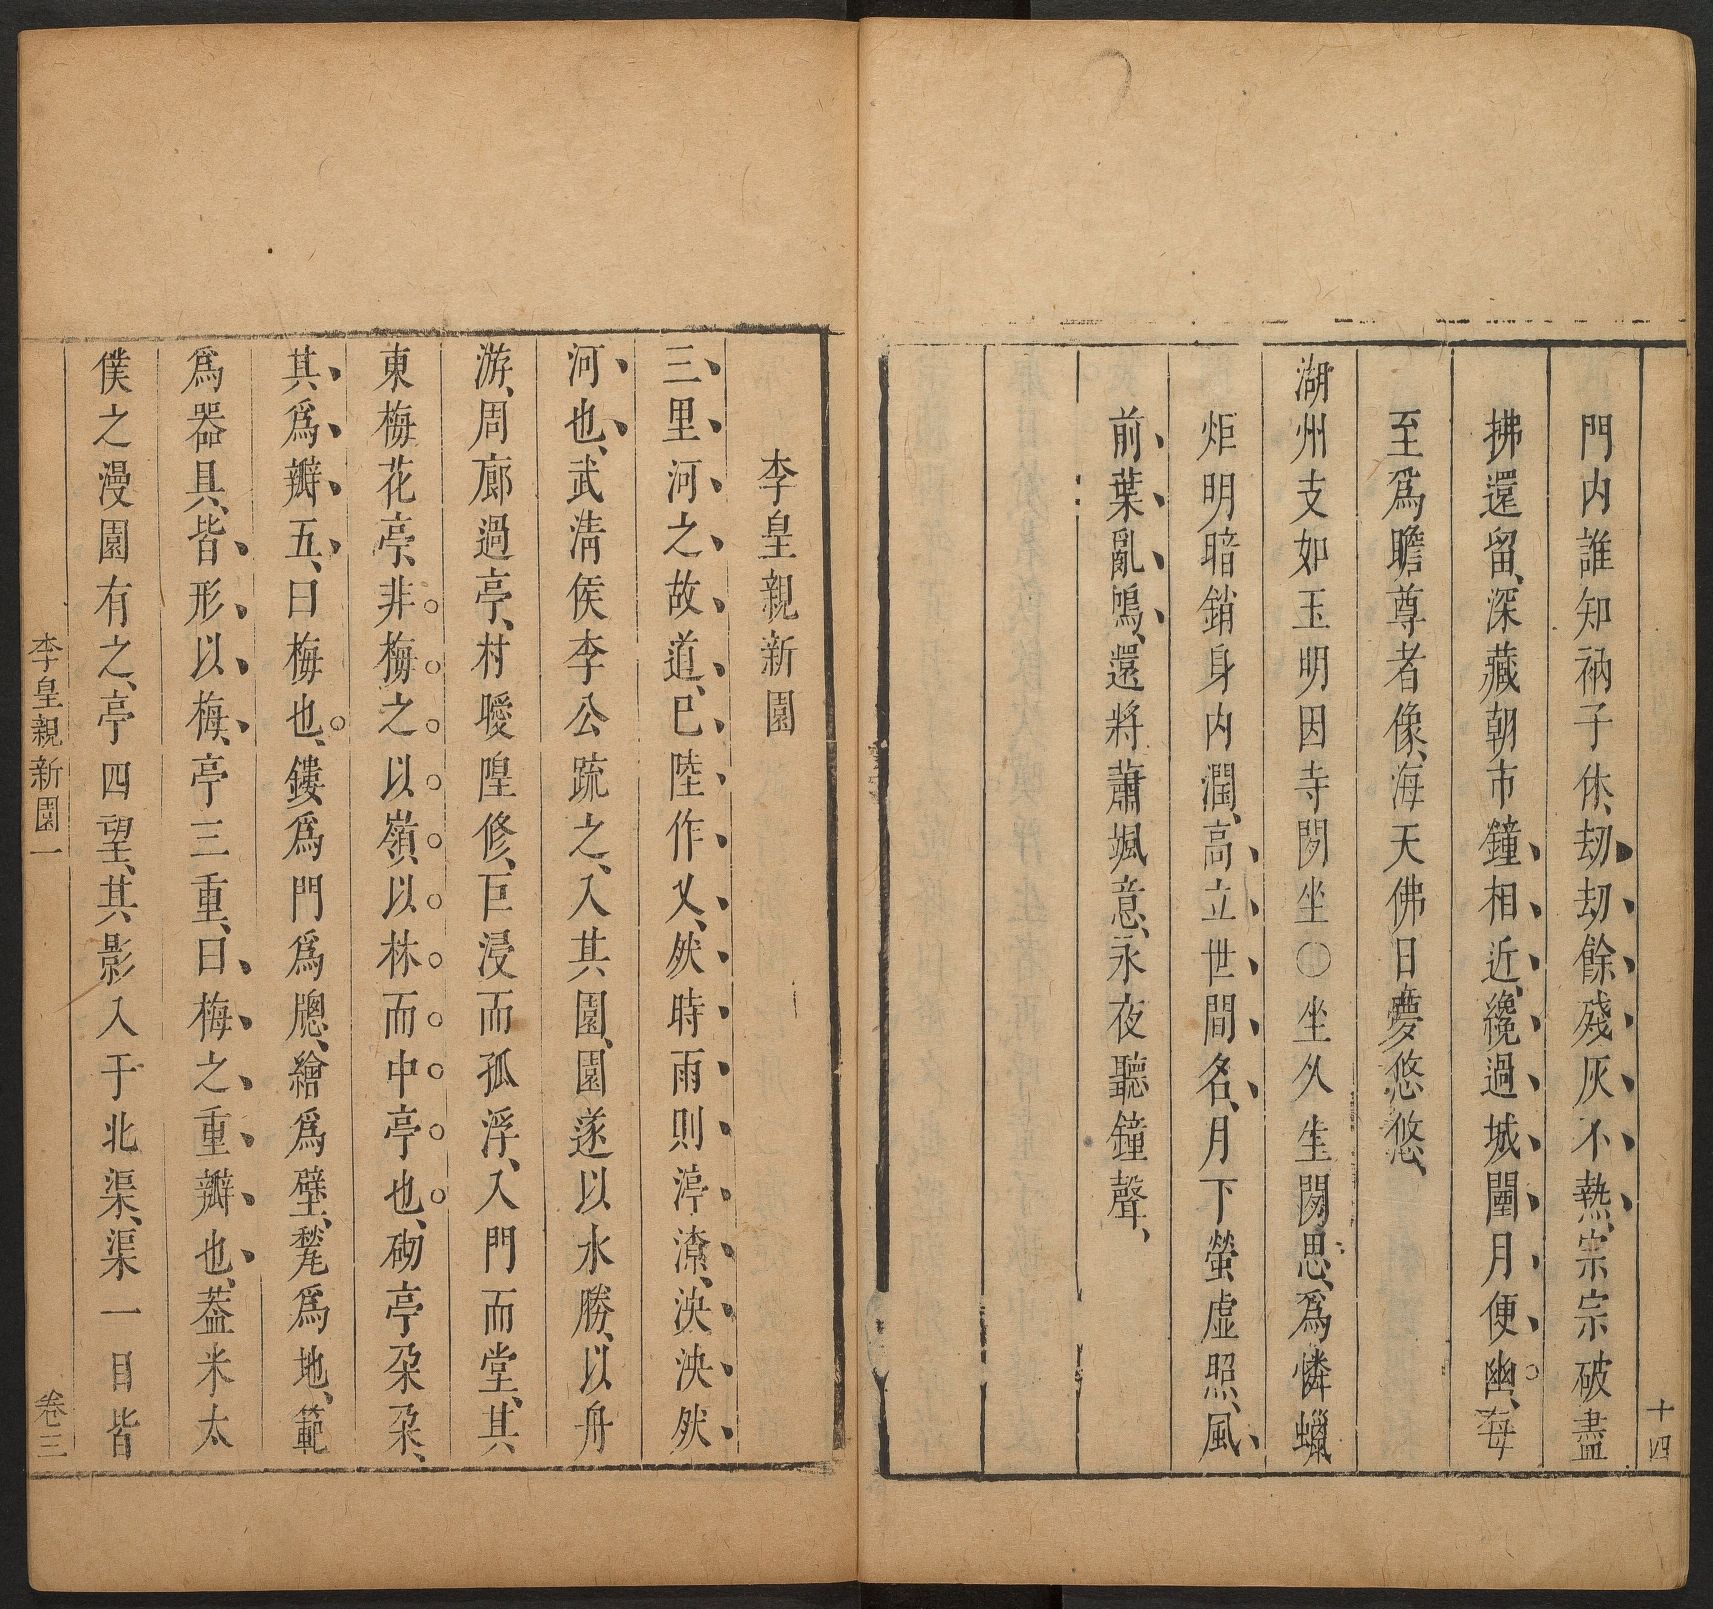 十四
門内誰知衲子休、劫劫餘殘灰不熱、宗宗破盡
拂還留、深藏朝市鐘相近、纔過城闉月便幽、每
至爲瞻尊者像、海天佛日夢悠悠、
湖州支如玉明因寺閒坐〇坐久生閒思、爲憐蠟
炬明暗銷身内潤、高立世間名、月下螢虛照、風
前葉亂鳴、還將蕭颯意、永夜聽鐘聲、
李皇親新園
三里河之故道、已陸作乂、然時雨則渟潦、泱泱然
河也、武淸侯李公疏之、入其園、園遂以水勝、以舟
游、周廊過亭、村曖隍修、巨浸而孤浮、入門而堂、其
東梅花亭、非梅之以嶺以林而中亭也、砌亭朶朶、
其爲瓣五、曰梅也、鏤爲門爲牕、繪爲壁、甃爲地、範
爲器具、皆形以梅、亭三重、曰梅之重瓣也、蓋米太
僕之漫園有之、亭四望、其影入于北渠、渠一目皆
李皇親新園一
卷三